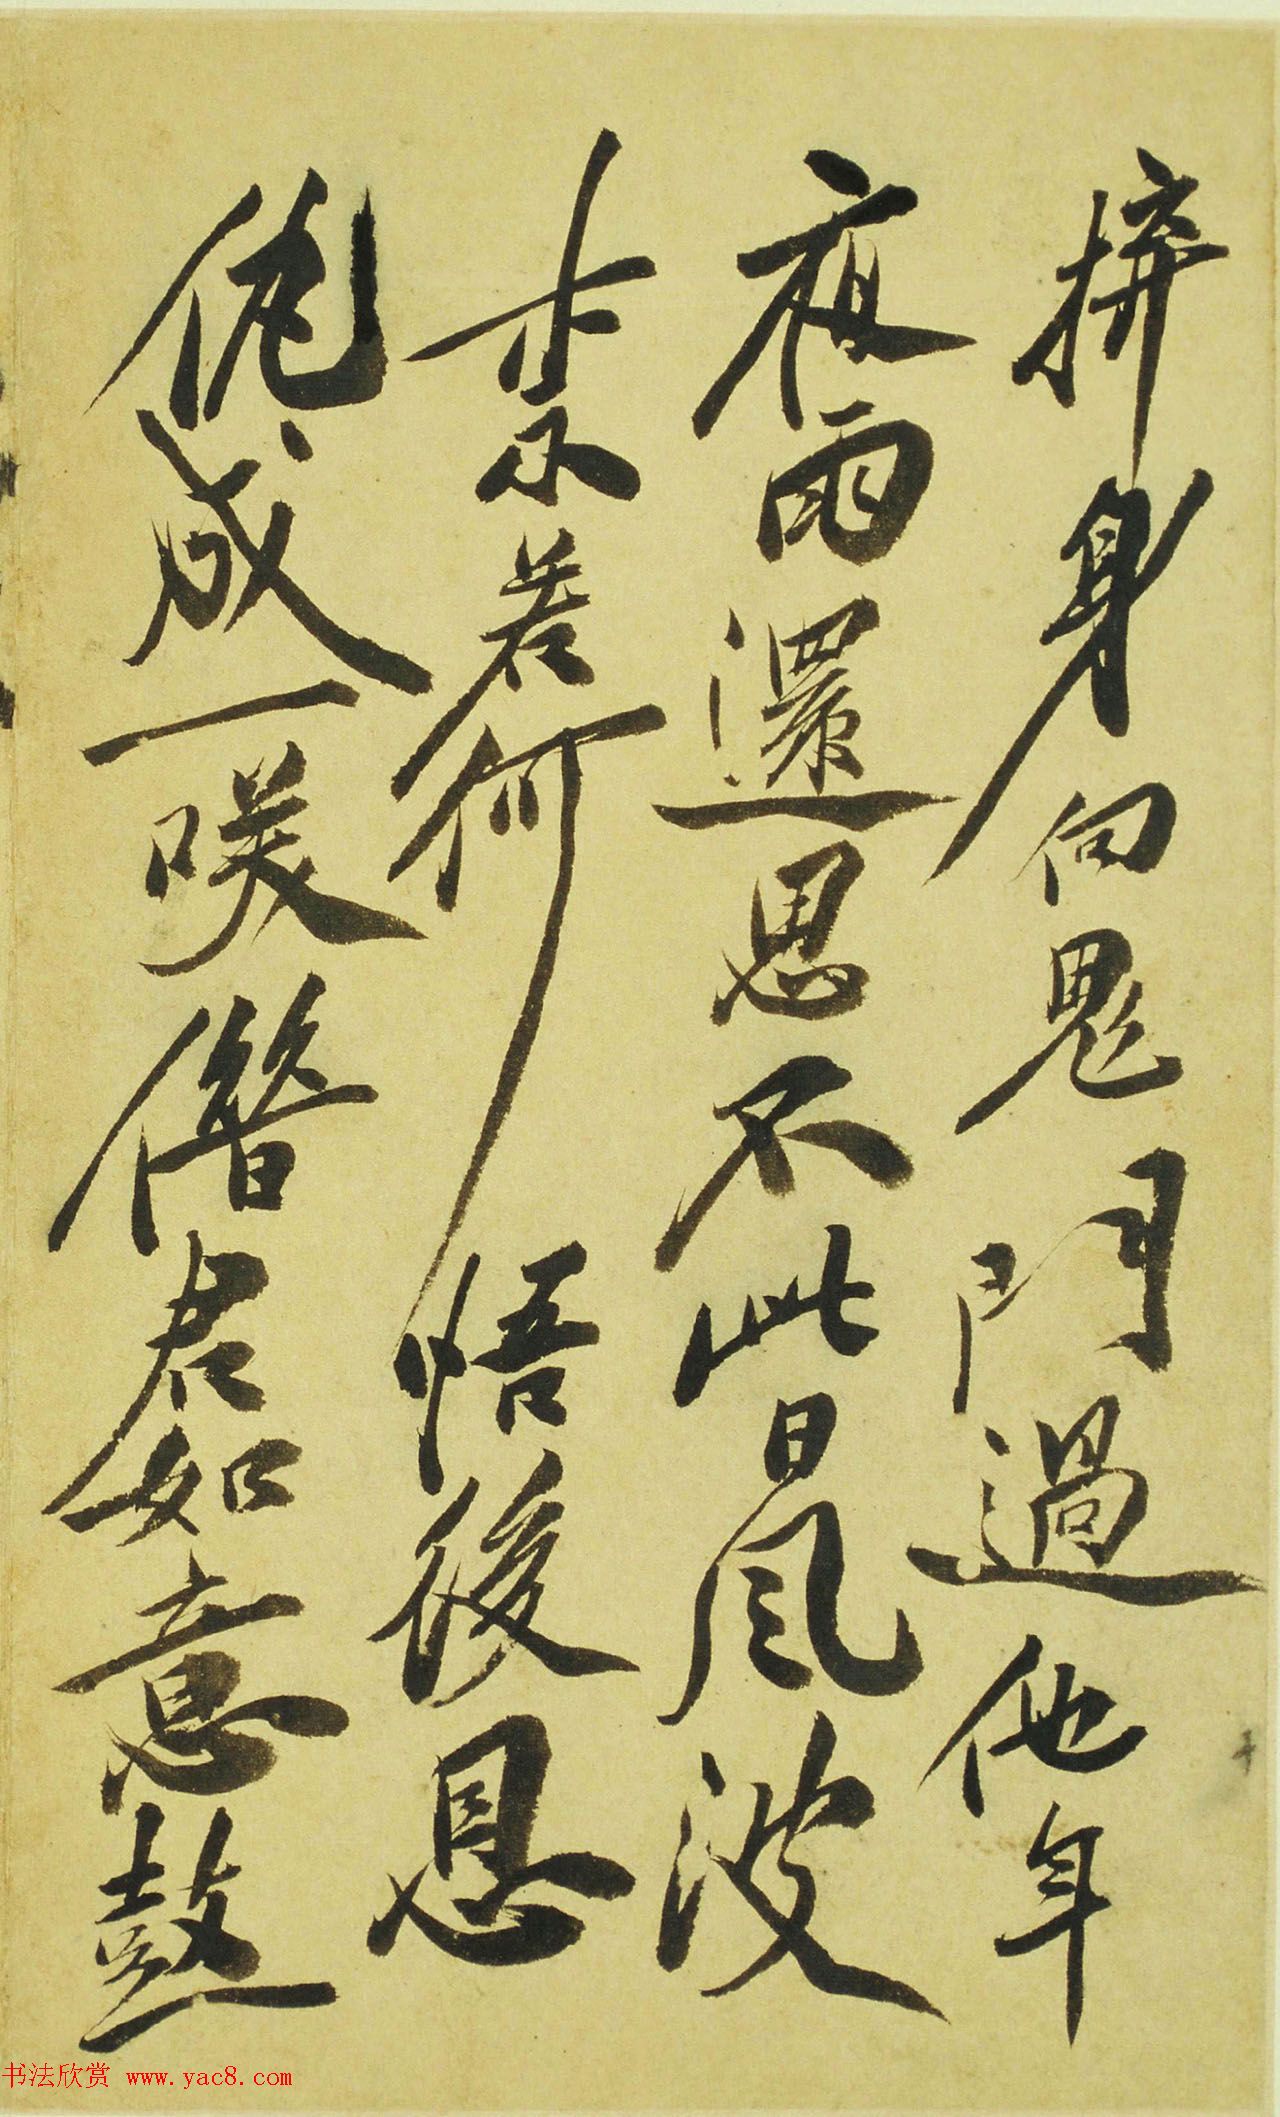 拚身向鬼門過他年
夜雨還思不此日風波
柰若何悟後恩
仇成一咲僭君如意鼓
书法欣赏 www.yac8.com